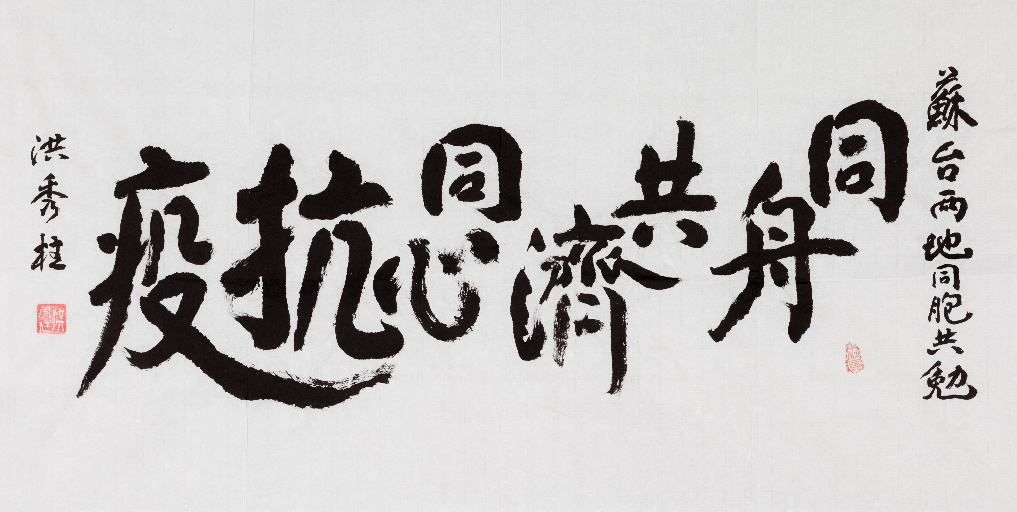 蘇台兩地同胞共勉
同舟共濟同心抗疫
洪秀柱